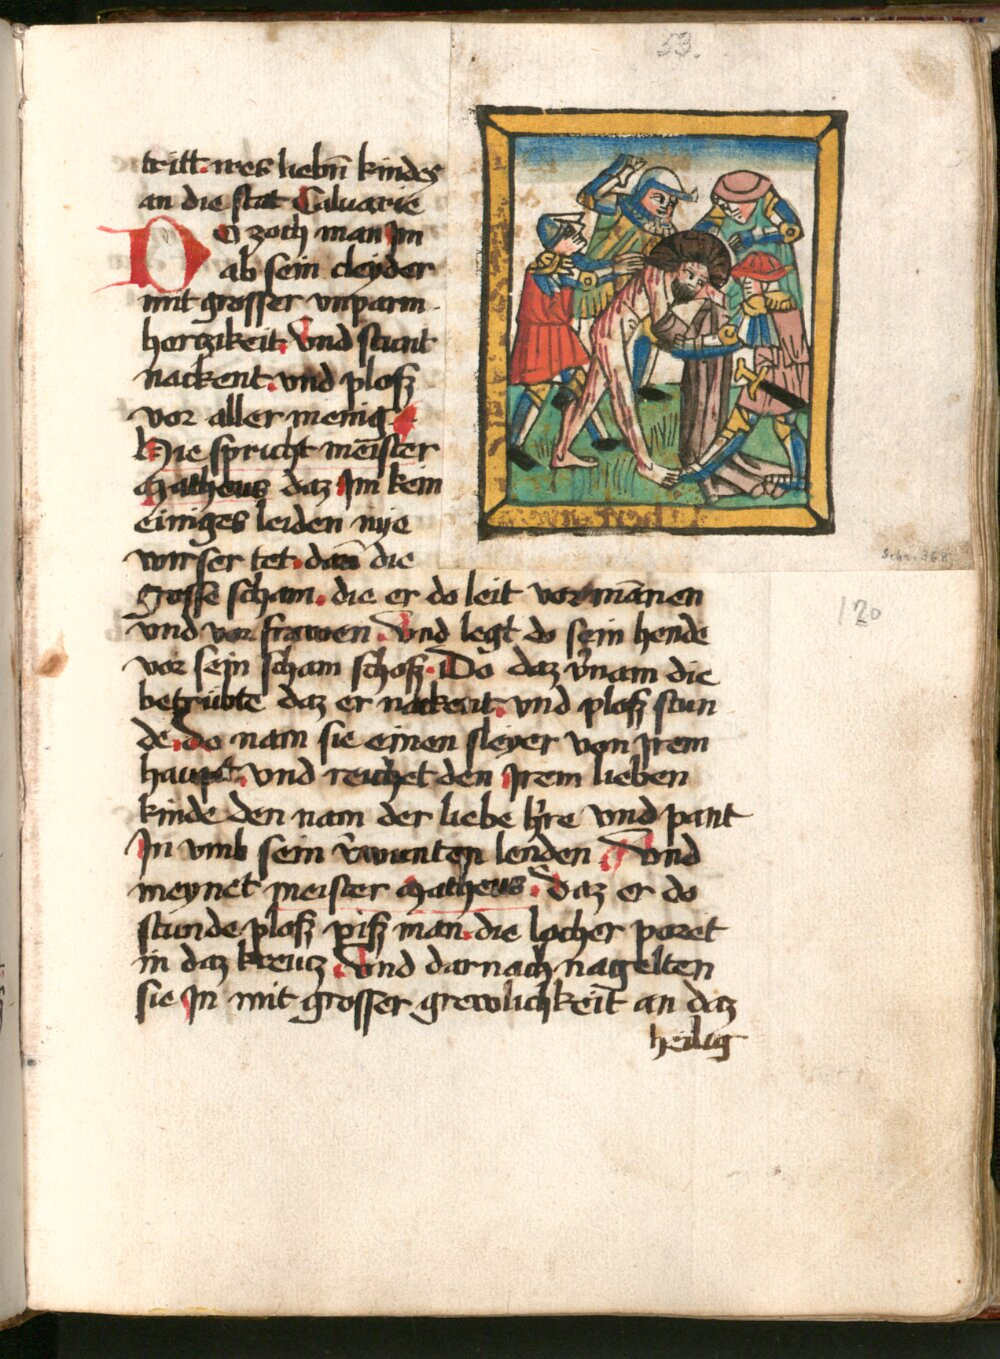 53.
tritt. ires liebn̄ kindes
an die stat Caluarie
DO zoch man Jm
ab sein cleyder
mit grosser vnparm
herczikeit. Vnd stunt
nackent. vnd ploß
vor aller menig.
Hie spricht meister
Matheus daz Jm kein
einiges leiden nye
wirser tet. dan̄ die
grosse scham. die er do leit vor man̄en
vnd vor frawen. Vnd legt do sein hende
vor sein scham schoß. Do daz v̄nam die
betrübte daz er nackent. vnd ploß stun
de. do nam sie einen sleyer von Jrem
haupt. Vnd reichet den Jrem lieben
kinde den nam der liebe h're vnd pant
Jn vmb sein v̄wunten lenden. Vnd
meynet meister Matheus. Daz er do
stunde ploß piß man. die locher poret
in daz kreucz. Vnd darnach nagelten
sie Jn mit grosser grewlichkeit an daz
heilig
Schr. 368
120